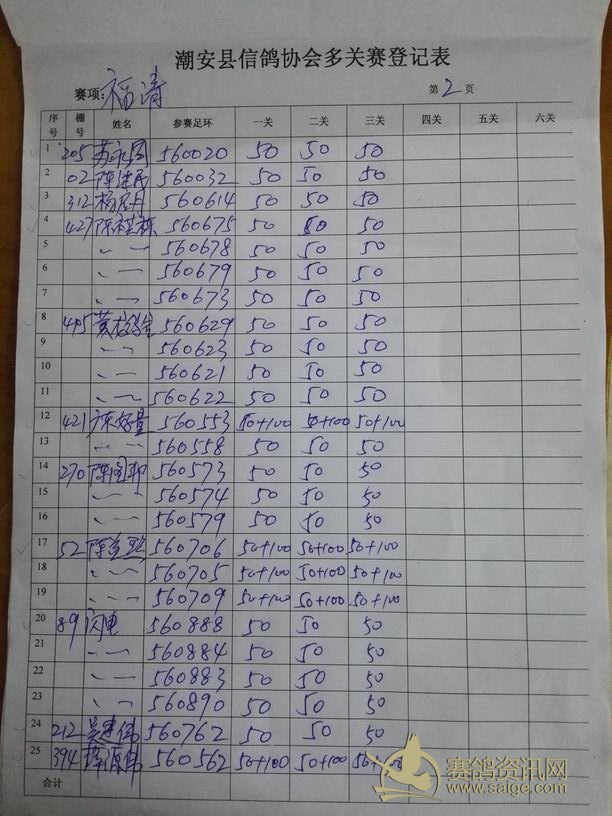 潮安县信鸽协会多关赛登记表
赛项: 福清 第 2 页
序号 棚号 姓名 参赛足环 一关 二关 三关 四关 五关 六关
1 205 560020 50 50 50
2 02 陈 560032 50 50 50
3 312 杨 560614 50 50 50
4 427 陈 560675 50 50 50
5 〃 一 560678 50 50 50
6 〃 一 560679 50 50 50
7 〃 一 560673 50 50 50
8 495 黄 560629 50 50 50
9 〃 一 560623 50 50 50
10 〃 一 560621 50 50 50
11 〃 一 560622 50 50 50
12 421 560553 50+100 50+100 50+100
13 〃 一 560558 50 50 50
14 270 陈 560573 50 50 50
15 〃 一 560574 50 50 50
16 〃 一 560579 50 50 50
17 52 陈 560706 50+100 50+100 50+100
18 〃 一 560705 50+100 50+100 50+100
19 〃 一 560709 50+100 50+100 50+100
20 89 闪电 560888 50 50 50
21 〃 一 560884 50 50 50
22 〃 一 560883 50 50 50
23 〃 一 560890 50 50 50
24 212 吴建伟 560762 50 50 50
25 394 薛 伟 560562 50+100 50+100 50+100
合计
赛鸽资讯网
www.saige.com